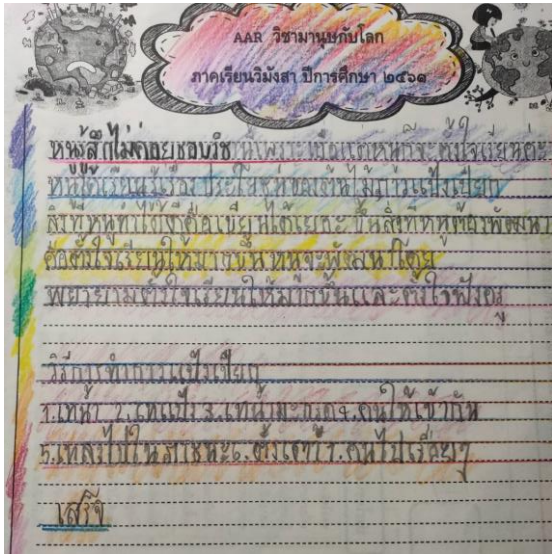 AAR วิชามานุษกับโลก
ภาคเรียนวิมังสา ปีการศึกษา ๒๔๖๑
หนูรู้สึกไม่ค่อยชอบวิชานี้เพราะเบื่อแต่หนูก็จะตั้งใจเรียนค่ะ
หนูได้เรียนรู้เรื่องประโยชน์ของต้นไม้กาวแป้งเปียก
สิ่งที่หนูทำได้ดีคือเขียนได้เยอะขึ้นสิ่งที่หนูต้องพัฒนา
คือตั้งใจเรียนให้มากขึ้นหนูจะพัฒนาโดย
พยายามตั้งใจเรียนให้มากขึ้นและตั้งใจฟังครู
วิธีการทำกาวแป้งเปียก
1.เทน้ำ 2.เทแป้ง 3.เทน้ำมะกรูด 4.คนให้เข้ากัน
5.เทลงไปในภาชนะ 6.ตั้งเตา 7.คนไปเรื่อยๆ
เสร็จ